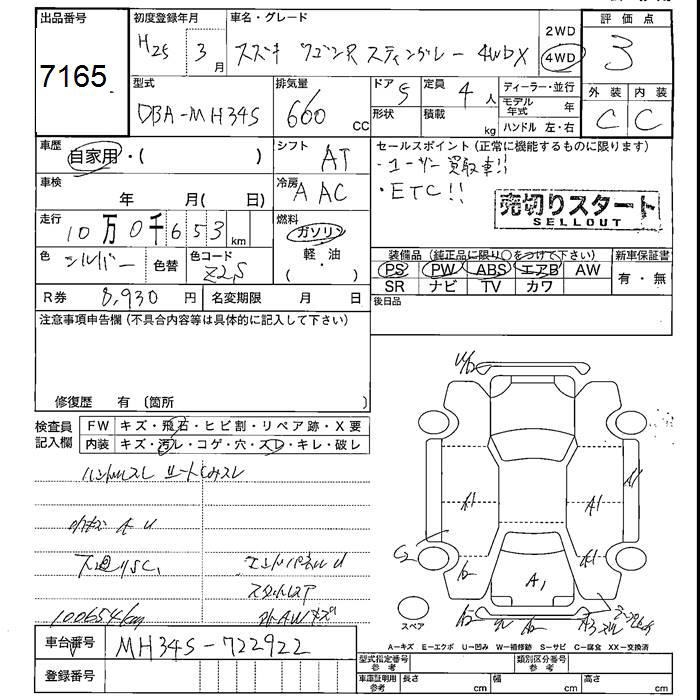 出品番号
7165
初度登録年月
H25 3月
車名・グレード
スズキ ワゴンR スティングレー 4WD X
2WD
4WD
評価点
3
外装 内装
C C
型式
DBA-MH34S
排気量
660 CC
ドア 5
形状
定員 4人
積載 kg
ディーラー・並行
モデル年式 年
ハンドル 左・右
車歴
自家用・( )
シフト
AT
セールスポイント(正常に機能するものに限ります)
・ユーザー買取車!!
・ETC!!
売切りスタート
SELLOUT
車検
年 月( 日)
冷房
AAC
走行
10万0千653km
燃料
ガソリン
軽・油
( )
色
シルバー
色替
色コード
Z2S
装備品(純正品に限り○をつけて下さい)
PS PW ABS エアB AW
SR ナビ TV カワ
新車保証書
有・無
R券 8,930円
名変期限 月 日
後日品
注意事項申告欄(不具合内容等は具体的に記入して下さい)
修復歴 有〔箇所 〕
検査員記入欄
FW キズ・飛石・ヒビ割・リペア跡・X要
内装 キズ・汚レ・コゲ・穴・スレ・キレ・破レ
ハンドルスレ シートしみスレ
小キズ A U
下廻りSC1
エンドパネルU
100654km
W2
A1
A1
A1
A1
C2
A1
スペア
車台番号 MH34S-722922
登録番号
A-キズ E-エクボ U-凹み W-補修跡 S-サビ C-腐食 XX-交換済
型式指定番号 参考
類別区分番号 参考
車庫証明用 参考 長さ cm 幅 cm 高さ cm